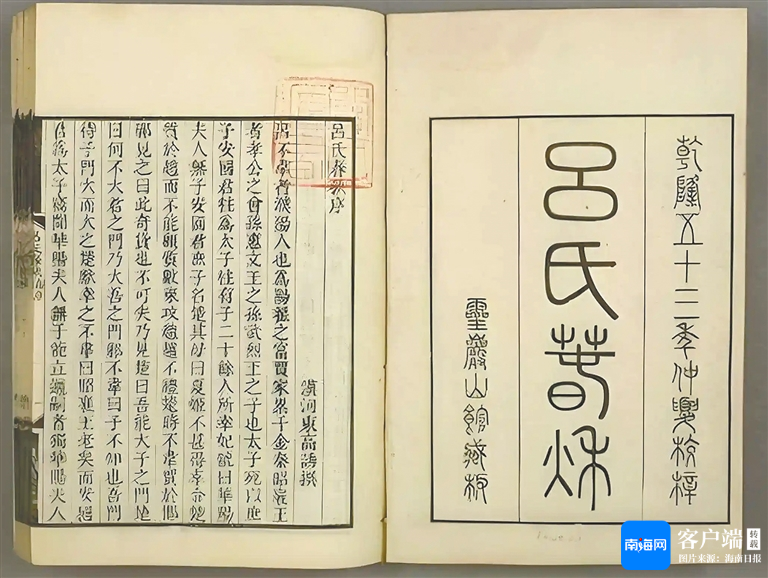 乾隆五十三年仲夏校梓
呂氏春秋
靈巖山館藏板
呂氏春秋序
漢河東高誘撰
呂不韋者濮陽人也爲陽翟之富賈家累千金秦昭襄王
者孝公之曾孫惠文王之孫武烈王之子也太子死以庶
子安國君柱爲太子柱有子二十餘人所幸妃號曰華陽
夫人無子安國君庶子名楚其母曰夏姬不甚得幸令楚
質於趙而不能顧質數東攻趙趙不禮楚時不韋賈於邯
鄲見之曰此奇貨也不可失乃見楚曰吾能大子之門楚
曰何不大君之門乃大吾之門邪不韋曰子不知也吾門
待子門大而大之楚默幸之不韋曰昭襄王老矣而安國
君爲太子竊聞華陽夫人無子能立適嗣者獨華陽夫人
南海网
客户端
转载
图片来源：海南日报